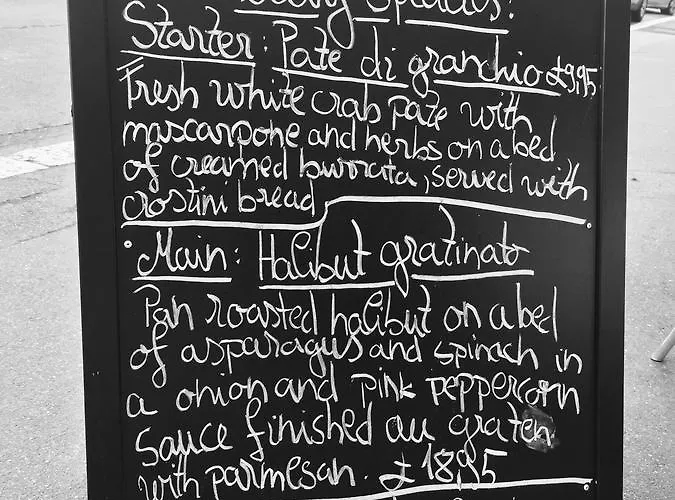 Specials:
Starter: Pate di granchio £9,95
Fresh white crab pate with
mascarpone and herbs on a bed
of creamed burrata, served with
crostini bread
Main: Halibut gratinato
Pan roasted halibut on a bed
of asparagus and spinach in
a onion and pink peppercorn
sauce finished au graten
with parmesan. £18,95